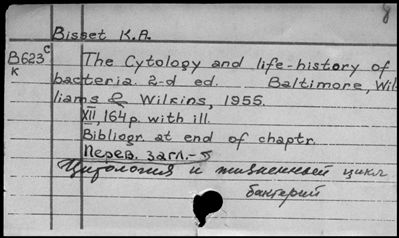 Bisset K.A.
B623 c The Cytology and life-history of
K bacteria. 2-d ed. Baltimore, Wil-
liams & Wilkins, 1955.
XII, 164 p. with ill.
Bibliogr. at end of chaptr.
Перев. загл.-
Цитология и жизненный цикл
бактерий